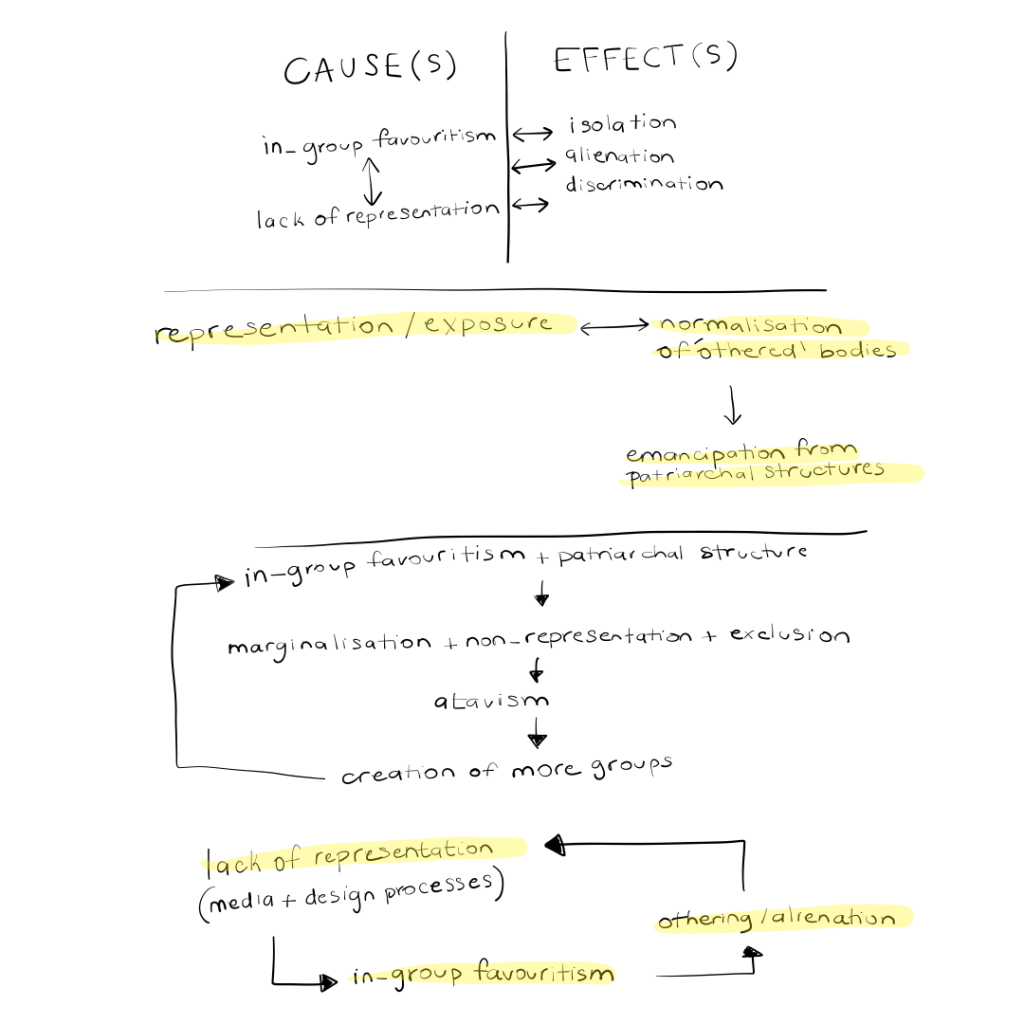 CAUSE(S)
EFFECT(S)
in-group favouritism
lack of representation
isolation
alienation
discrimination
representation / exposure
normalisation
of 'othered' bodies
emancipation from
patriarchal structures
in-group favouritism + patriarchal structure
marginalisation + non-representation + exclusion
atavism
creation of more groups
lack of representation
(media + design processes)
othering / alienation
in-group favouritism